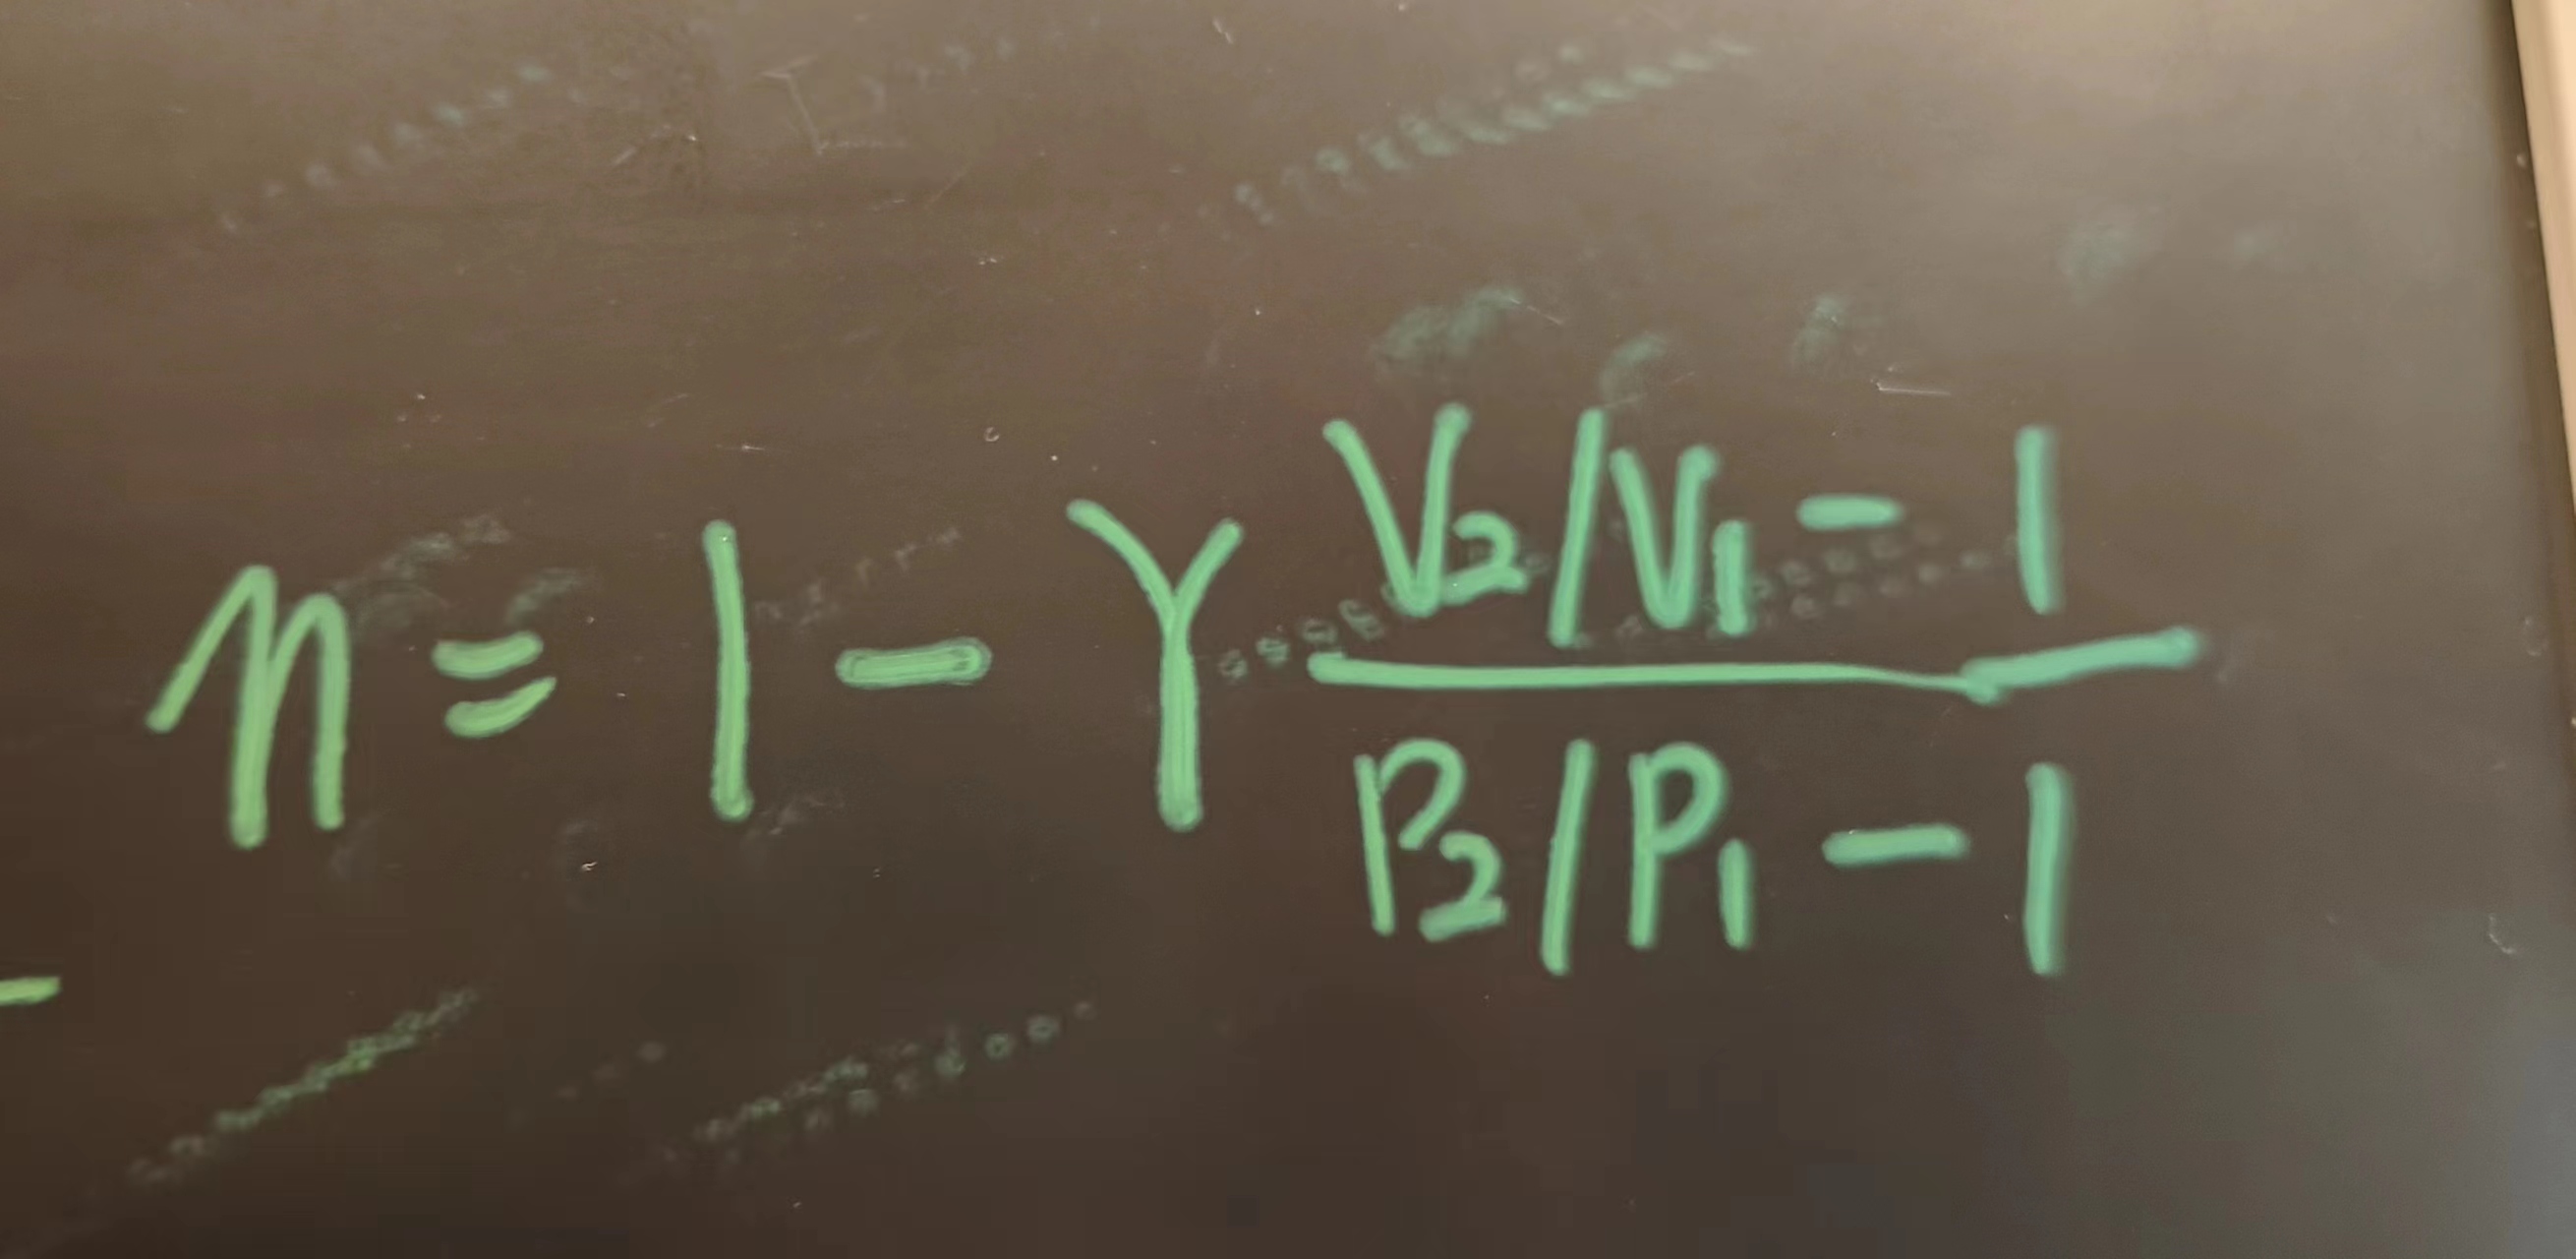 η = 1 - γ (V₂/V₁ - 1)/(P₂/P₁ - 1)